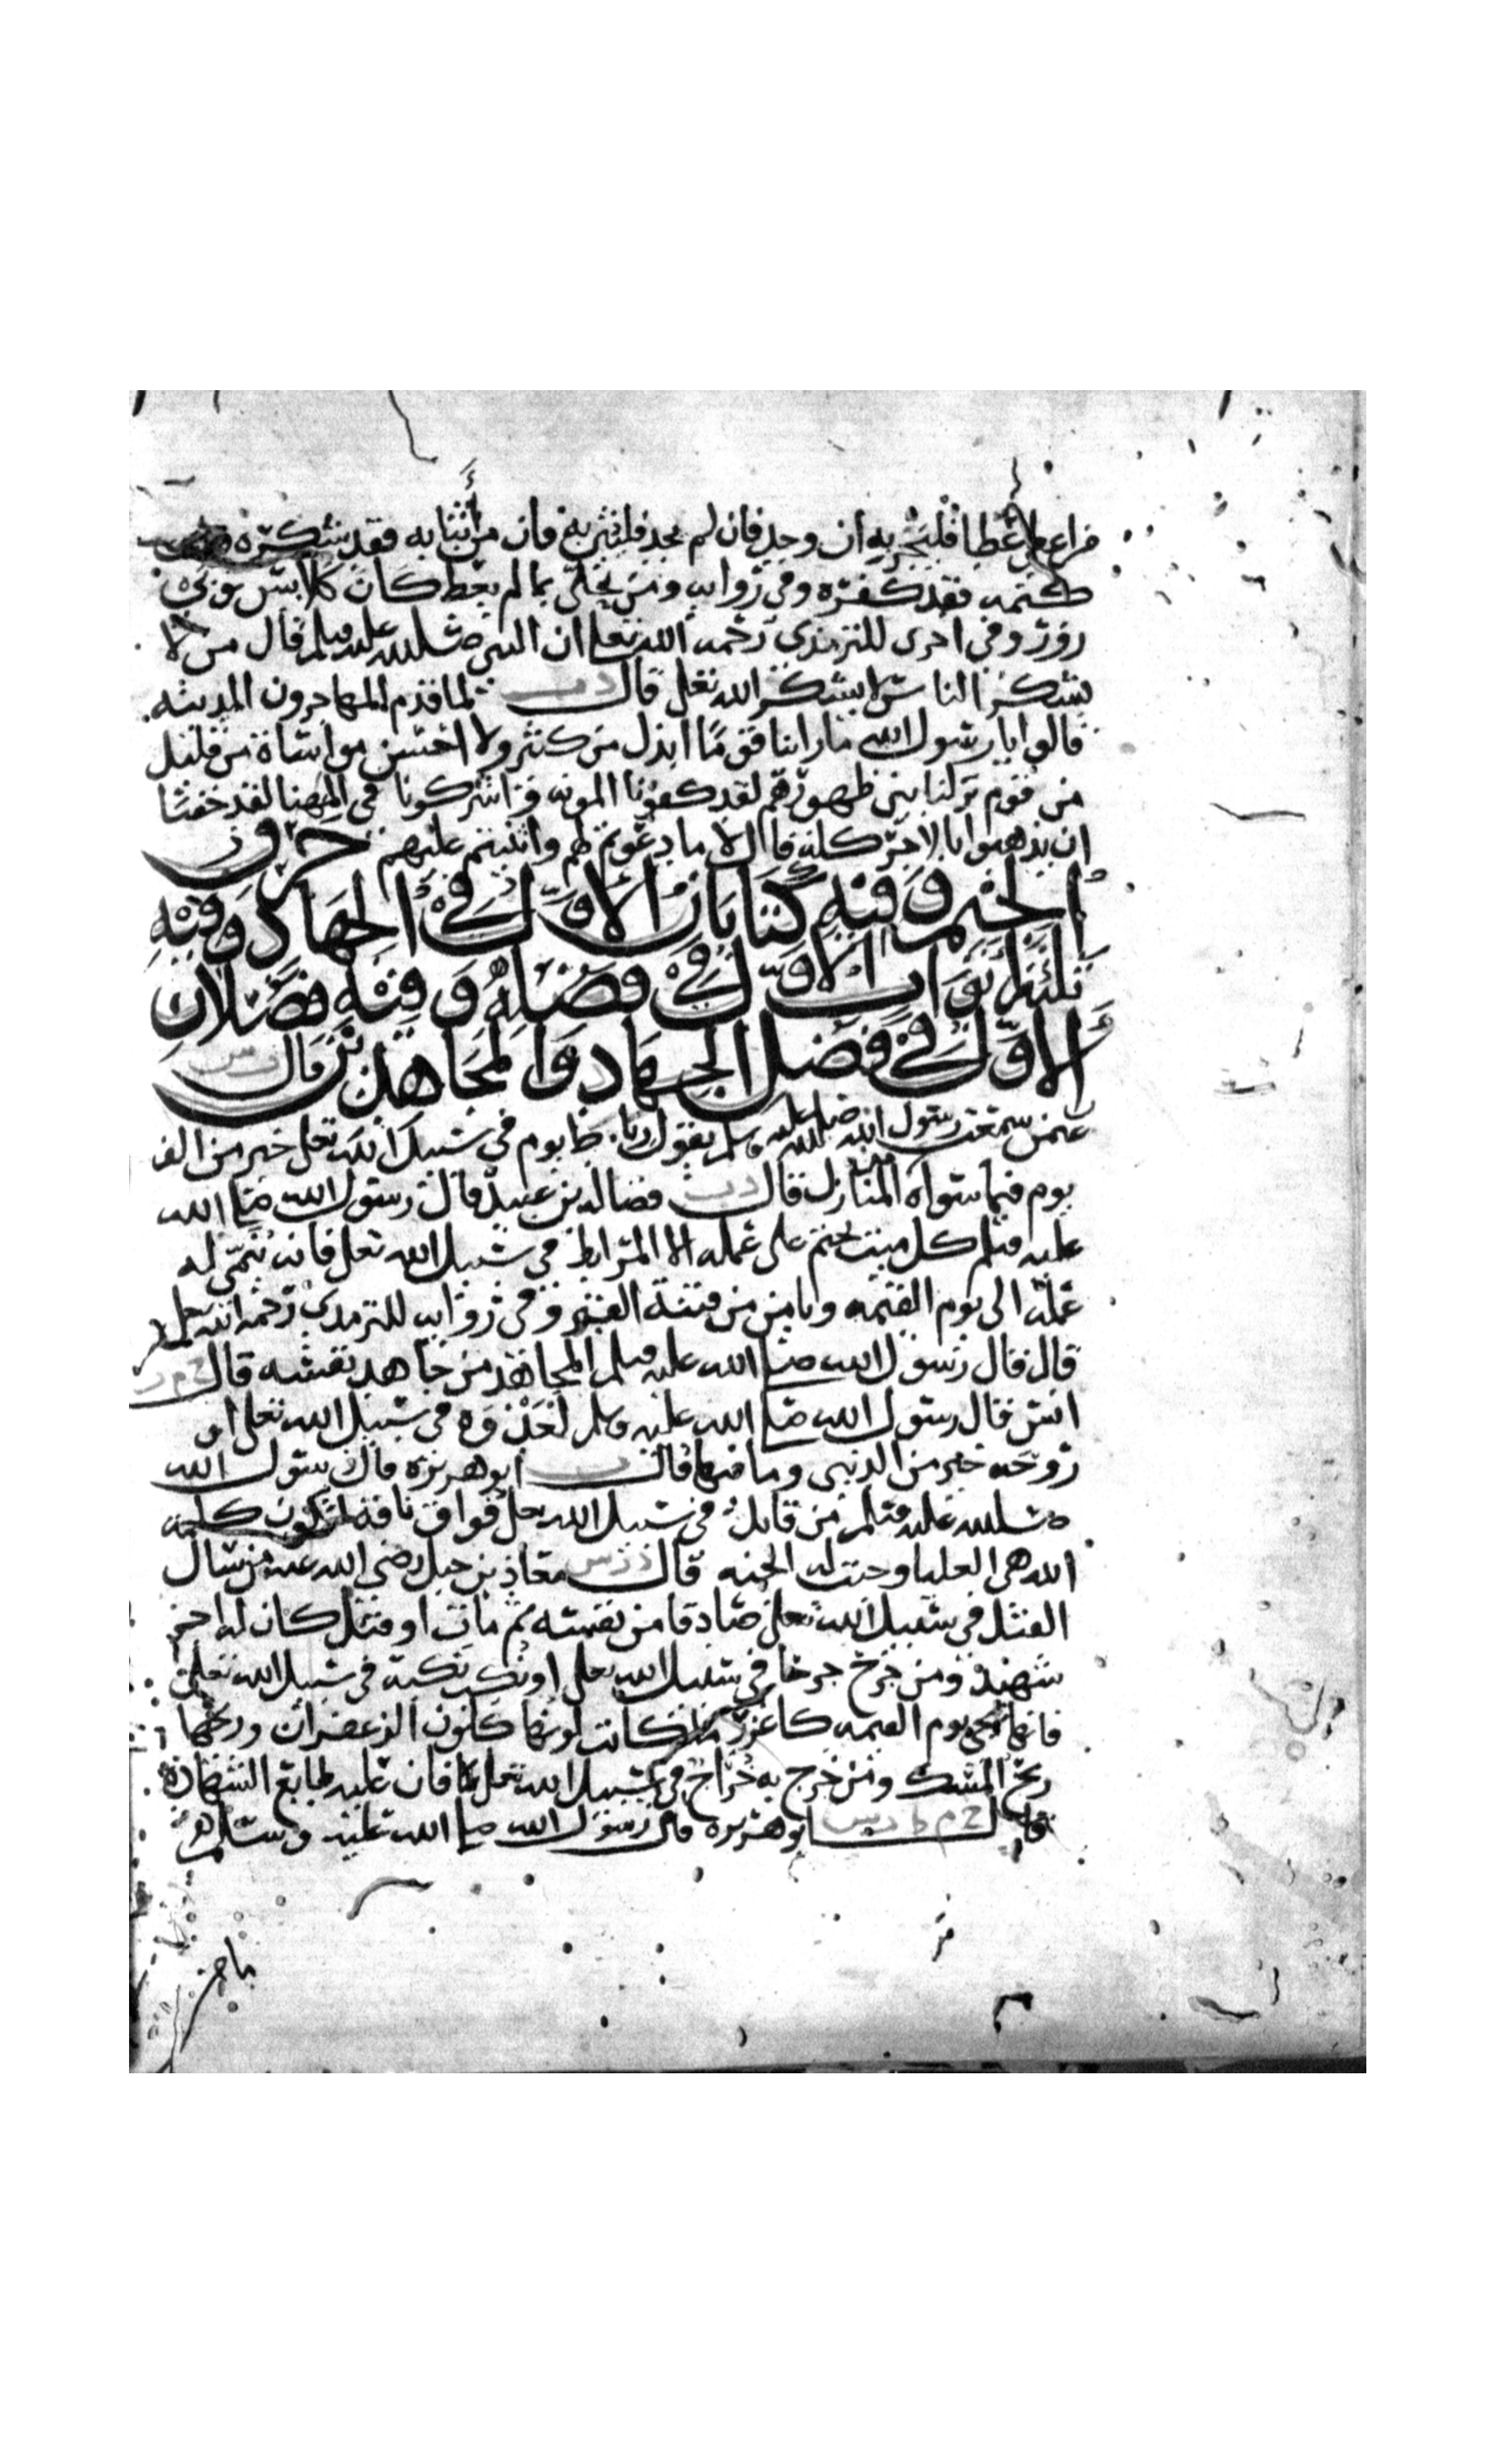 من اعطي عطا فليجز به ان وجد فان لم يجد فليثن به فان من أثنا به فقد شكره ومن
كتمه فقد كفره وفي رواية ومن تحلى بما لم يعط كان كلابس ثوبي
زور وفي اخرى للترمذي رحمه الله تعلى ان النبي صلى الله عليه وسلم قال من لا
يشكر الناس لا يشكر الله تعلى قال لما قدم المهاجرون المدينه
قالوا يا رسول الله ما راينا قوما ابذل من كثير ولا احسن مواساة من قليل
من قوم نزلنا بين ظهورهم لقد كفونا المونه واشركونا في المهنا لقد خفنا
ان يذهبوا بالاجر كله قال لا ما دعوتم لهم واثنيتم عليهم حرف
الجيم وفيه كتابان الاول في الجهاد وفيه
ثلثة ابواب الاول في فضله وفيه فصلان
الاول في فضل الجهاد والمجاهدين قال د س
عثمن سمعت رسول الله صلى الله عليه وسلم يقول رباط يوم في سبيل الله تعلى خير من الف
يوم فيما سواه من المنازل قال د ت فضاله بن عبيد قال رسول الله صلى الله
عليه وسلم كل ميت يختم على عمله الا المرابط في سبيل الله تعلى فانه ينمى له
عمله الى يوم القيمه ويامن من فتنة القبر وفي رواية للترمذي رحمه الله تعلى
قال قال رسول الله صلى الله عليه وسلم المجاهد من جاهد نفسه قال خ م ت
انس قال رسول الله صلى الله عليه وسلم لغدوة في سبيل الله تعلى او
روحه خير من الدنيى وما فيها قال ت ابو هريره قال رسول الله
صلى الله عليه وسلم من قاتل في سبيل الله تعلى فواق ناقة لتكون كلمه
الله هي العليا وجبت له الجنه قال معاذ بن جبل رضي الله عنه من سال
القتل في سبيل الله تعلى صادقا من نفسه ثم مات او قتل كان له اجر
شهيد ومن جرح جرحا في سبيل الله تعلى او نكب نكبة في سبيل الله تعلى
فانها تجي يوم القيمه كاغزر ما كانت لونها كلون الزعفران وريحها
ريح المسك ومن خرج به خراج في سبيل الله تعلى فان عليه طابع الشهادة
قال خ م ط د س ابو هريره قال رسول الله صلى الله عليه وسلم